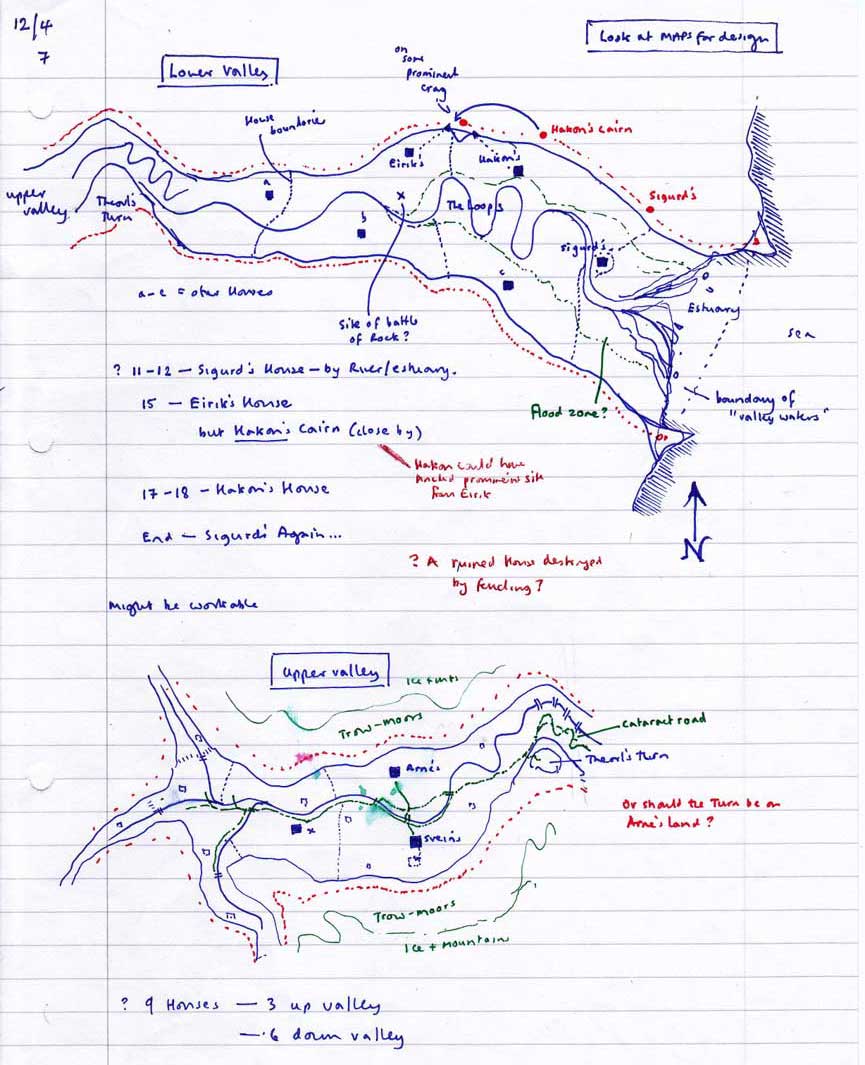 12/4
7
Look at MAPS for design
Lower valley
on
some
prominent
crag
House
boundaries
Hakon's cairn
Eirik's
Hakon's
upper
valley
Theorl's
Turn
a
x
The Loops
Sigurd's
b
Sigurd's
c
Estuary
sea
a-c = other Houses
Site of battle
of Rock?
? 11-12 — Sigurd's House — by River/estuary.
15 — Eirik's House
but Hakon's Cairn (close by)
Flood zone?
boundary of
"valley waters"
Hakon could have
nicked prominent site
from Eirik
17-18 — Hakon's House
End — Sigurd's Again...
N
? A ruined House destroyed
by feuding?
Might be workable
Upper valley
Ice + mts
Trow-moors
cataract road
Arne's
Theorl's Turn
x
Svein's
Or should the Turn be on
Arne's land?
Trow-moors
Ice + mountain
? 9 Houses — 3 up valley
— 6 down valley